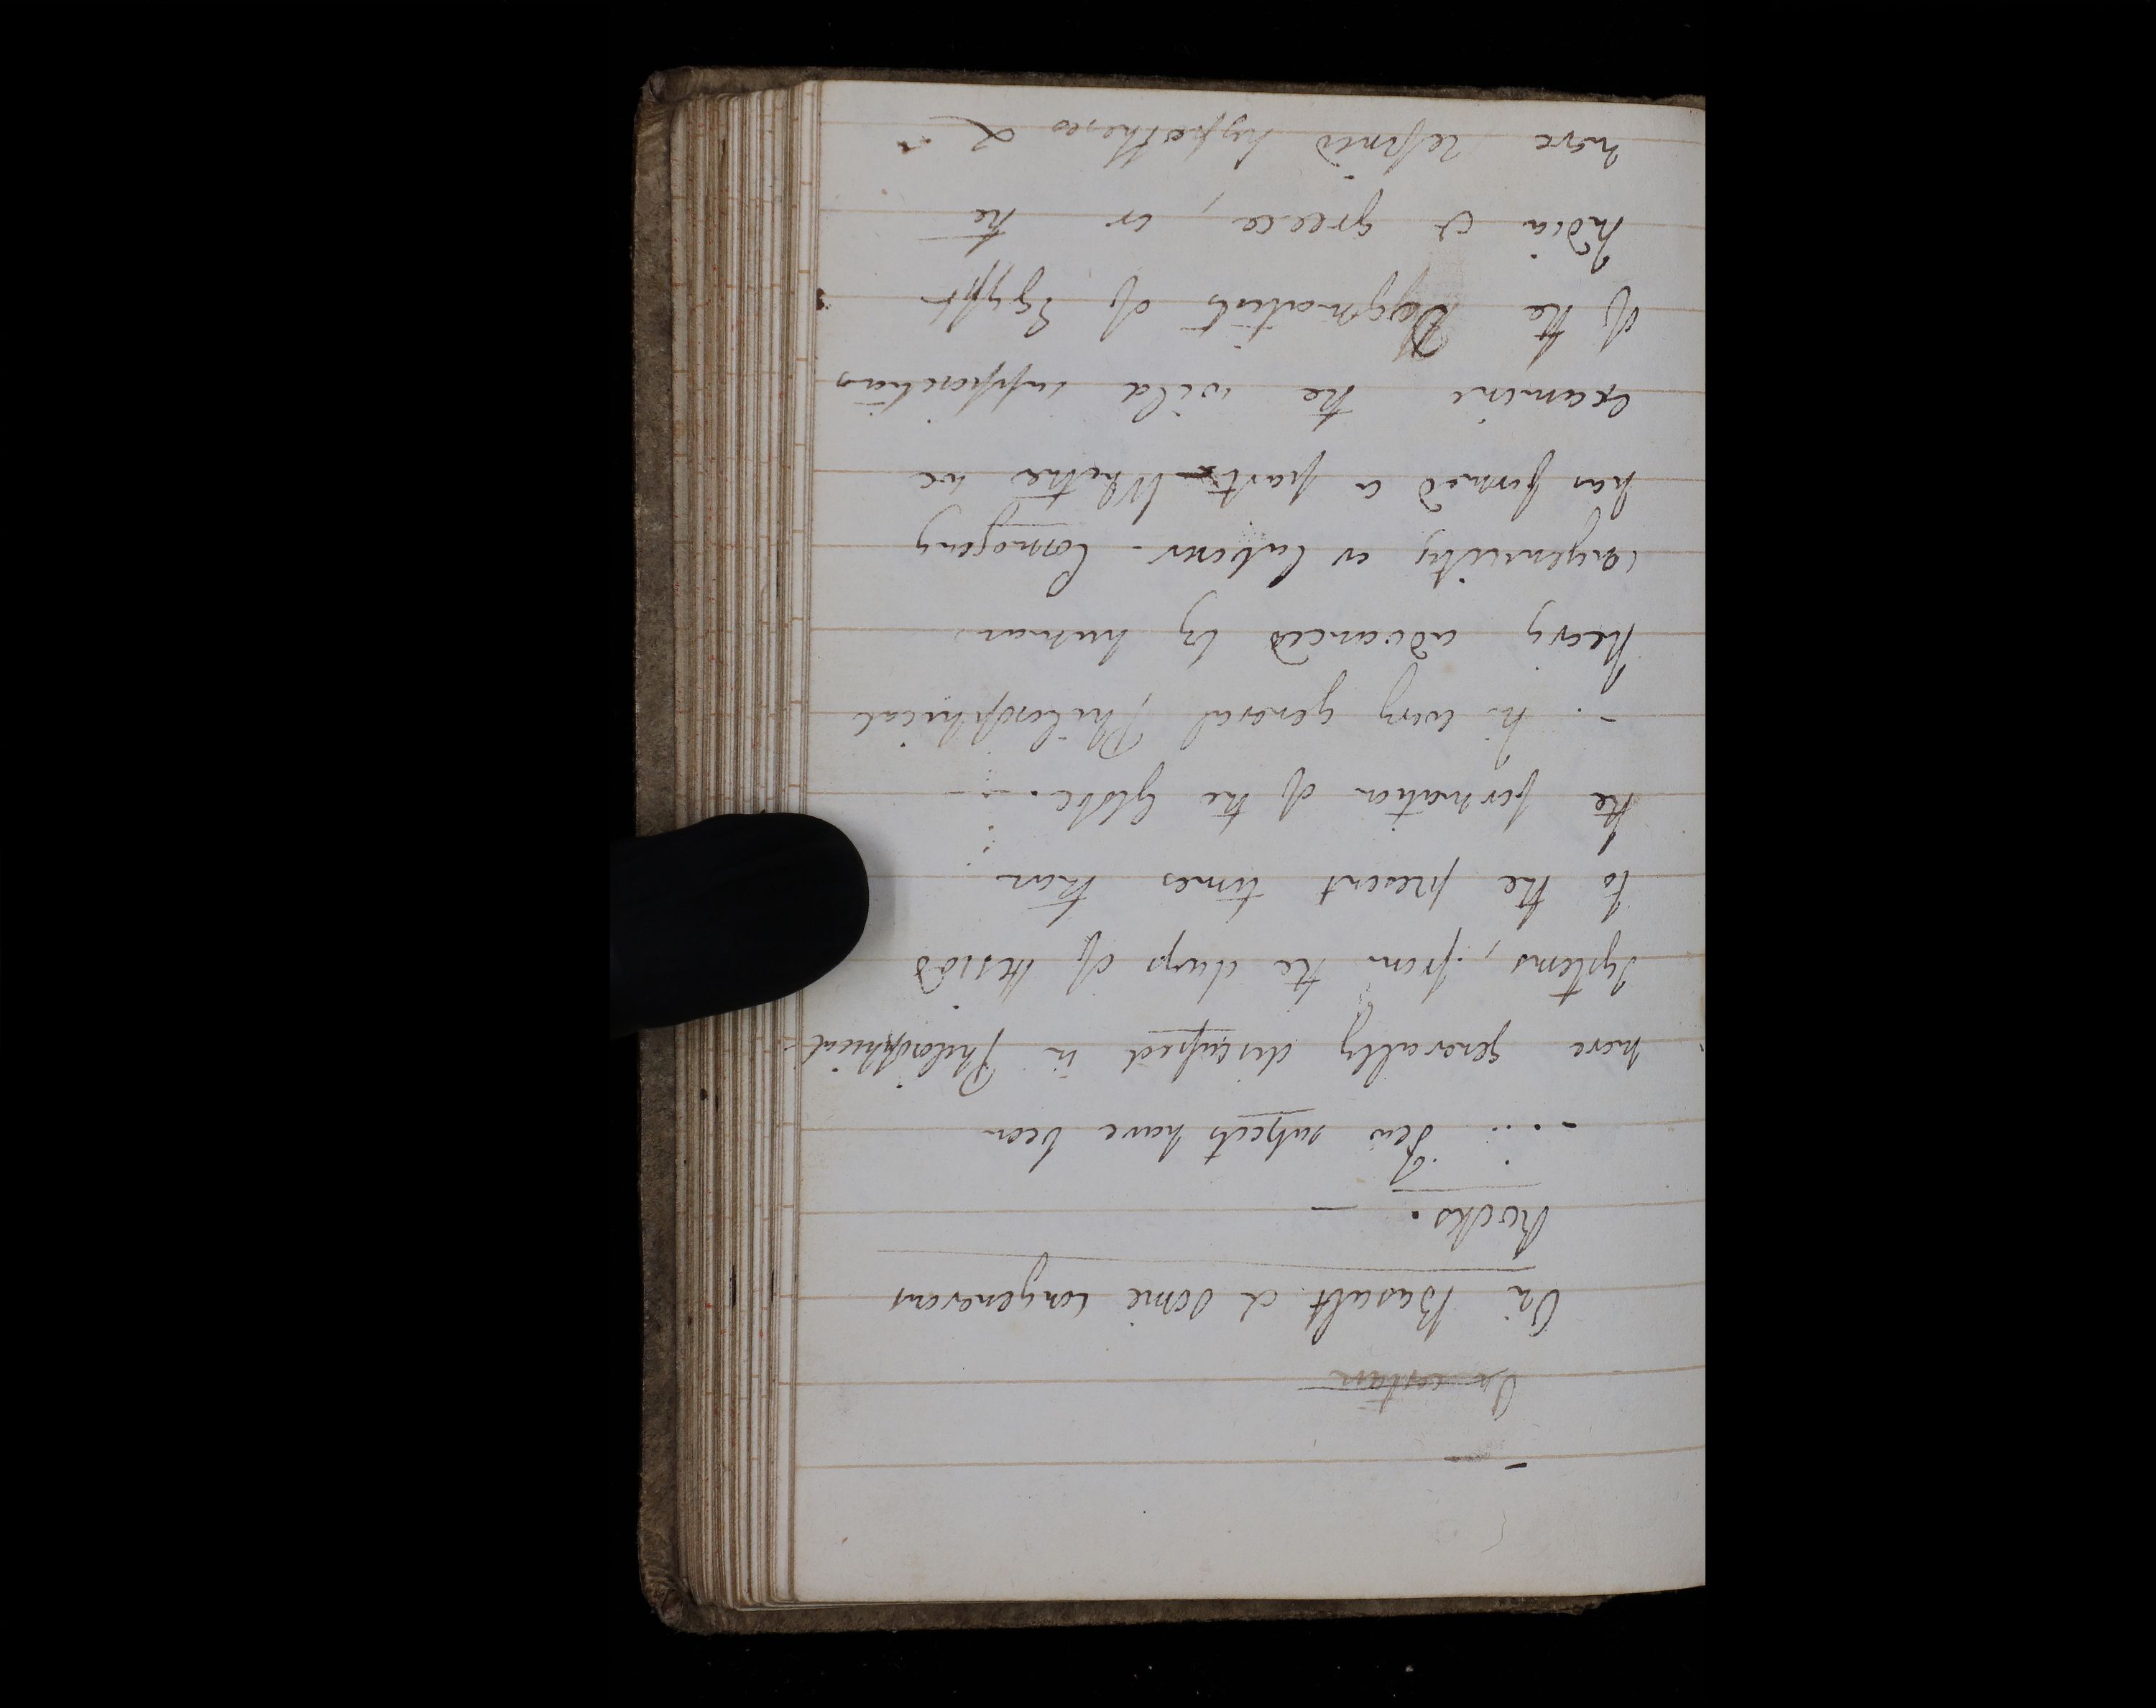 On certain
On Basalt & some congenerous
Rocks. —
— . . . Few subjects have been
more generally discussed in Philosophical
Systems, from the days of Hesiod
to the present times than
the formation of the Globe. —
— . In every general Philosophical
theory advanced by human
ingenuity or labour - Cosmogony
has formed a part. Whether we
examine the wild suppositions
of the Dogmatists of Egypt
India & greece, or the
more refined hypotheses &